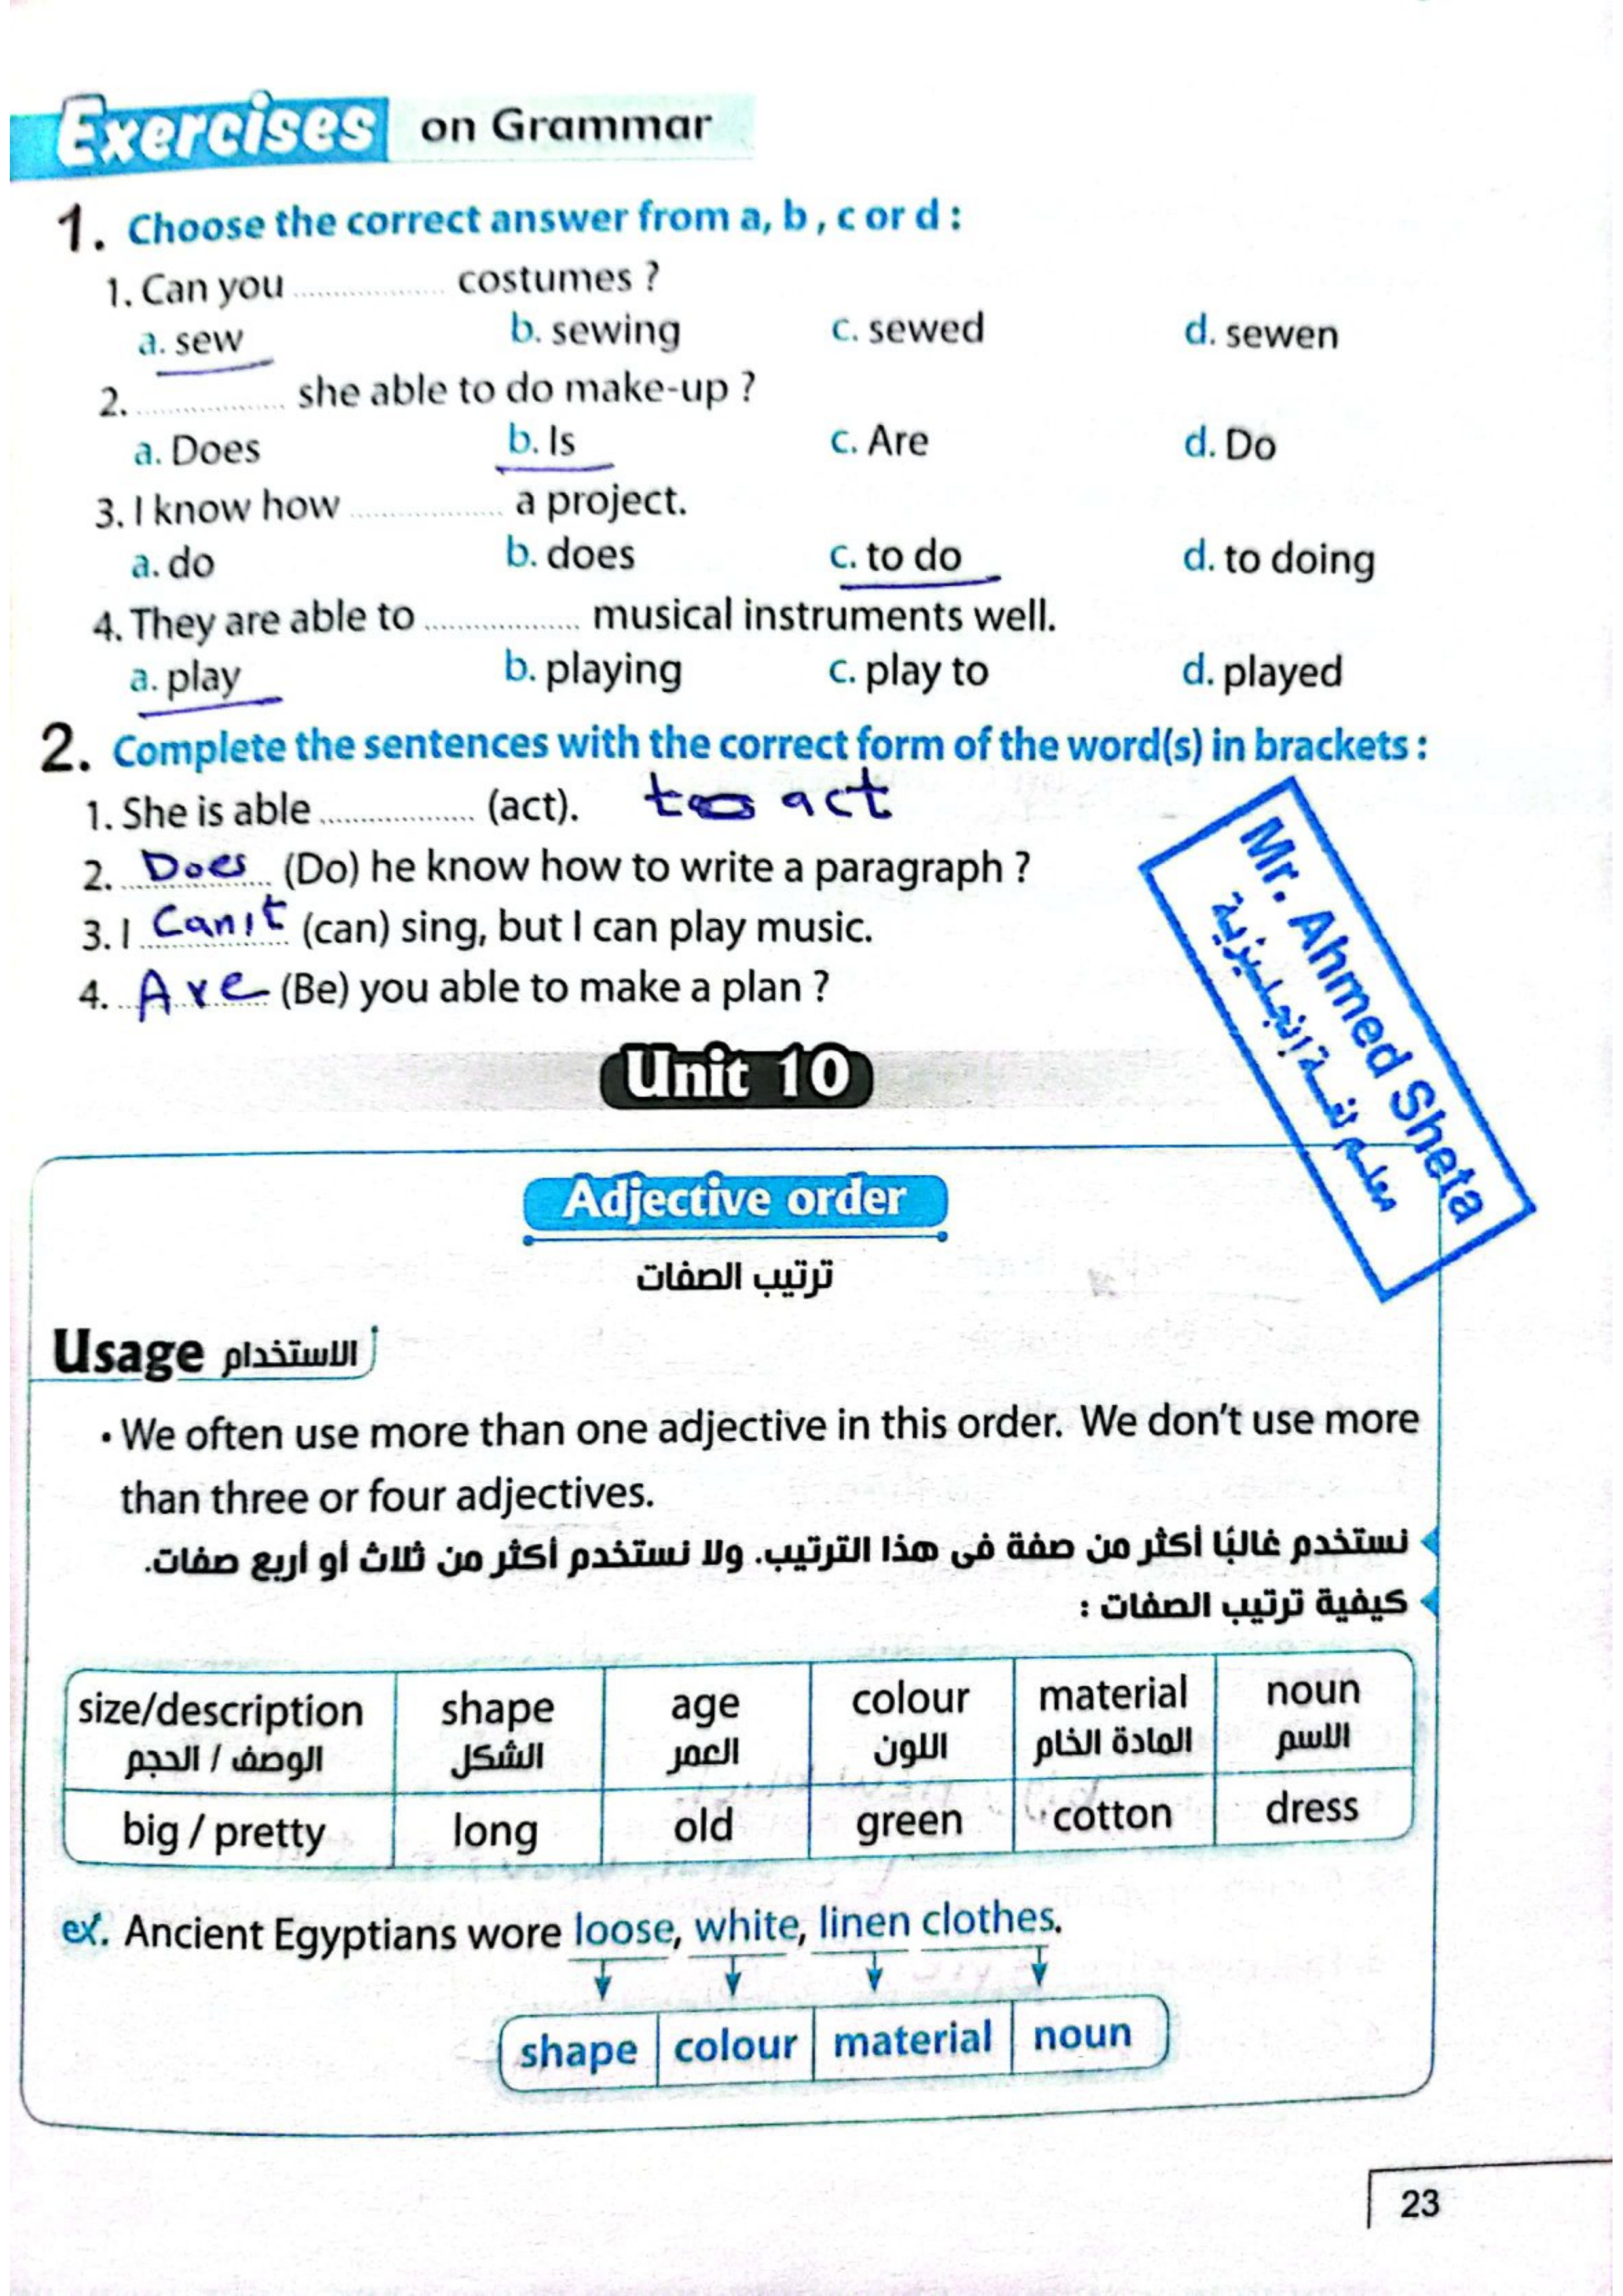 Exercises on Grammar
1. Choose the correct answer from a, b, c or d :
1. Can you ................. costumes ?
a. sew b. sewing c. sewed d. sewen
2. ................. she able to do make-up ?
a. Does b. Is c. Are d. Do
3. I know how ................. a project.
a. do b. does c. to do d. to doing
4. They are able to ................. musical instruments well.
a. play b. playing c. play to d. played
2. Complete the sentences with the correct form of the word(s) in brackets :
1. She is able ................. (act). to act
2. Does (Do) he know how to write a paragraph ?
3. I Can't (can) sing, but I can play music.
4. Are (Be) you able to make a plan ?
Mr. Ahmed Sheta
معلم لغة إنجليزية
Unit 10
Adjective order
ترتيب الصفات
Usage الاستخدام
• We often use more than one adjective in this order. We don't use more
than three or four adjectives.
نستخدم غالبًا أكثر من صفة فى هذا الترتيب. ولا نستخدم أكثر من ثلاث أو أربع صفات.
كيفية ترتيب الصفات :
size/description shape age colour material noun
الوصف / الحجم الشكل العمر اللون المادة الخام الاسم
big / pretty long old green cotton dress
ex. Ancient Egyptians wore loose, white, linen clothes.
shape colour material noun
23